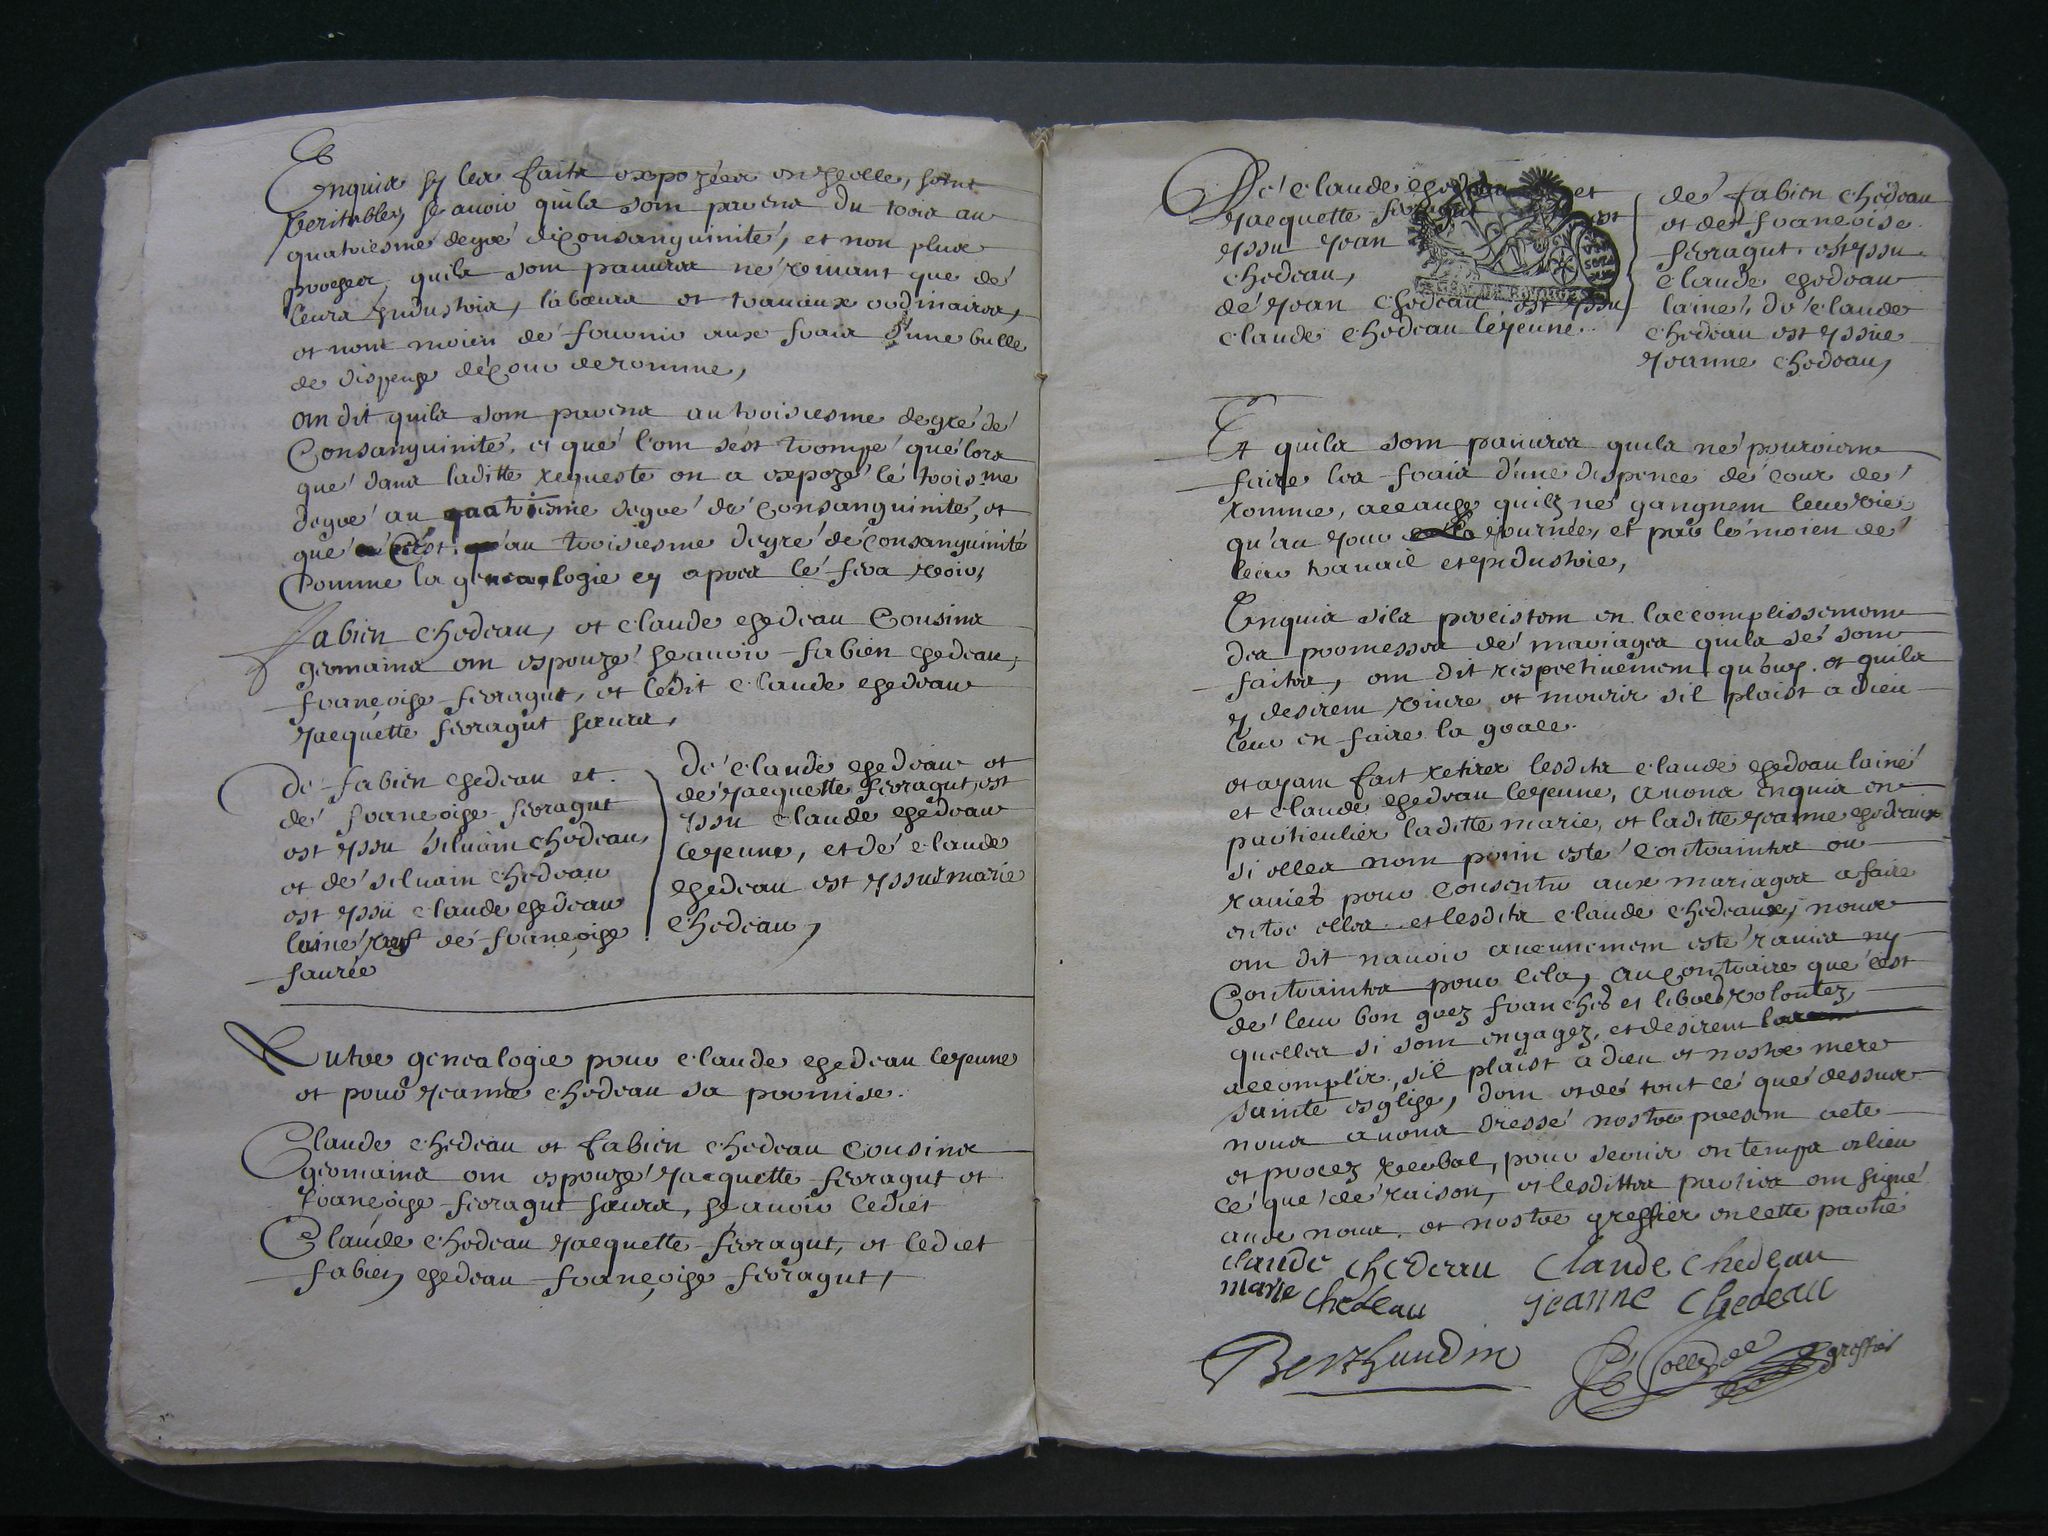 Enquis sy les faits expozées en ycelle, sont
veritables, scavoir quils sont parens du trois au
quatriesme degré de Consanguinité, et non plus
proches, quils sont pauvres ne vivant que de
leurs yndustrie, labeurs et travaux ordinaires,
et nont moien de fournir aux frais d'une bulle
de dispense de Cour de romme,
ont dit quils sont parens au troisiesme degré de
Consanguinité, et que l'om s'est trompé que lors
que dans laditte requeste on a expozé le troisme
degré au quatrisme degré de Consanguinité, et
que c'est au troisiesme degré de Consanguinité
Comme la genealogie cy apres le fera voir,
fabien chedeau, et claude chedeau Cousins
germains ont espouzé scavoir fabien chedeau,
françoise ferragut, et ledit claude chedeau
Jacquette ferragut sœurs,
De fabien chedeau et
de françoise ferragut
est yssu silvain chedeau,
et de silvain chedeau
est yssu claude chedeau
lainé, de françoise
faurée
De claude chedeau et
de Jacquette ferragut est
yssu claude chedeau
leJeune, et de claude
chedeau est yssue marie
chedeau,
Autre genealogie pour claude chedeau leJeune
et pour Jeanne chedeau sa promise.
Claude chedeau et fabien chedeau Cousins
germains ont espouzé Jacquette ferragut et
françoise ferragut sœurs, scavoir lediet
Claude chedeau Jacquette ferragut, et lediet
fabien chedeau françoise ferragut,
De claude chedeau et
Jacquette ferragut est
yssu Jean
chedeau,
de Jean chedeau est yssu
claude chedeau leJeune.
de fabien chedeau
et de françoise
ferragut est yssu
claude chedeau
lainé, de claude
chedeau est yssue
Jeanne chedeau,
Et quils sont pauvres quils ne pouroient
faire les frais d'une dispence de cour de
romme, a cause quilz ne gangnent leur vie
qu'au Jour la Journée, et par le moien de
leur travail et yndustrie,
Enquis sils percistent en laccomplissement
des promesses de mariages quils se sont
faites, ont dit respectivement qu'ouy et quils
y desirent vivre et mourir sil plaist a dieu
leur en faire la grace.
et ayant fait retirer lesdits claude chedeau lainé
et claude chedeau leJeune, avons enquis en
particulier laditte marie, et laditte Jeanne chedeaux
si elles nont point esté Contraintes ou
ravies pour Consentir aux mariages a faire
entre elles et lesdits claude chedeaux, nous
ont dit navoir aucunnement esté ravies ny
Contraintes pour cela, au Contraire que c'est
de leur bon grez franches et libres volontez
quelles si sont engagez, et desirent
accomplir, sil plaist a dieu et nostre mere
sainte esglise, dont et de tout ce que dessus
nous avons dressé nostre present acte
et procez verbal, pour servir en temps et lieu
ce que de raison, et lesdittes parties ont signé
avec nous et nostre greffier en cette partie
claude chedeau Claude chedeau
marie chedeau jeanne chedeau
Berthaudin
greffier